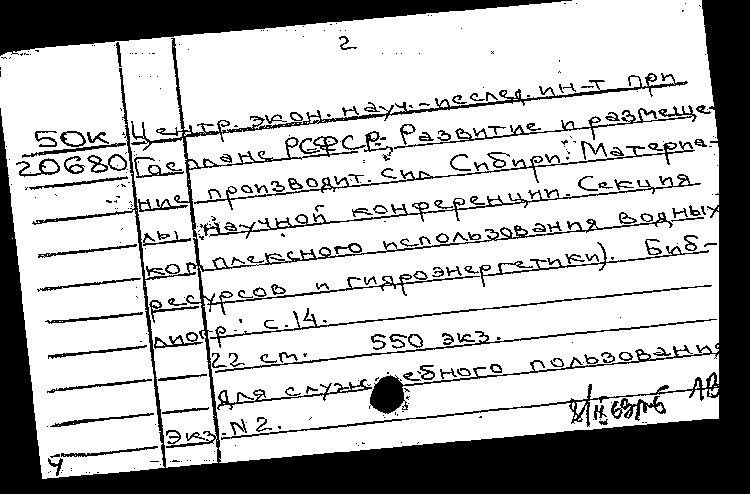 2
50К Центр. экон. науч.-исслед. ин-т при
20680 Госплане РСФСР; Развитие и размеще-
ние производит. сил Сибири: Материа-
лы научной конференции. Секция
комплексного использования водных
ресурсов и гидроэнергетики). Биб-
лиогр.: с.14.
22 см. 550 экз.
Для служебного пользования
Экз. N2.
ЛВ
Ч